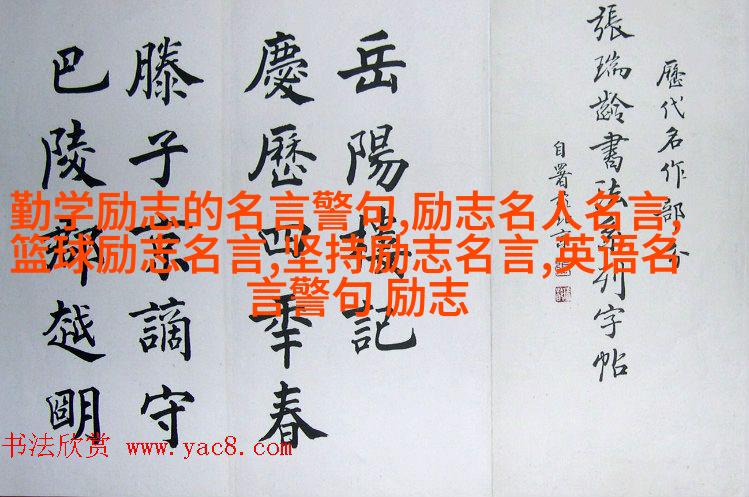 歷代名作部分
張瑞齡書法系列字帖
自署於北京
岳陽樓記
慶歷四年春
滕子京謫守
巴陵郡越明
勤学励志的名言警句,励志名人名言,
篮球励志名言,坚持励志名言,英语名
言警句,励志
书法欣赏 www.yac8.com